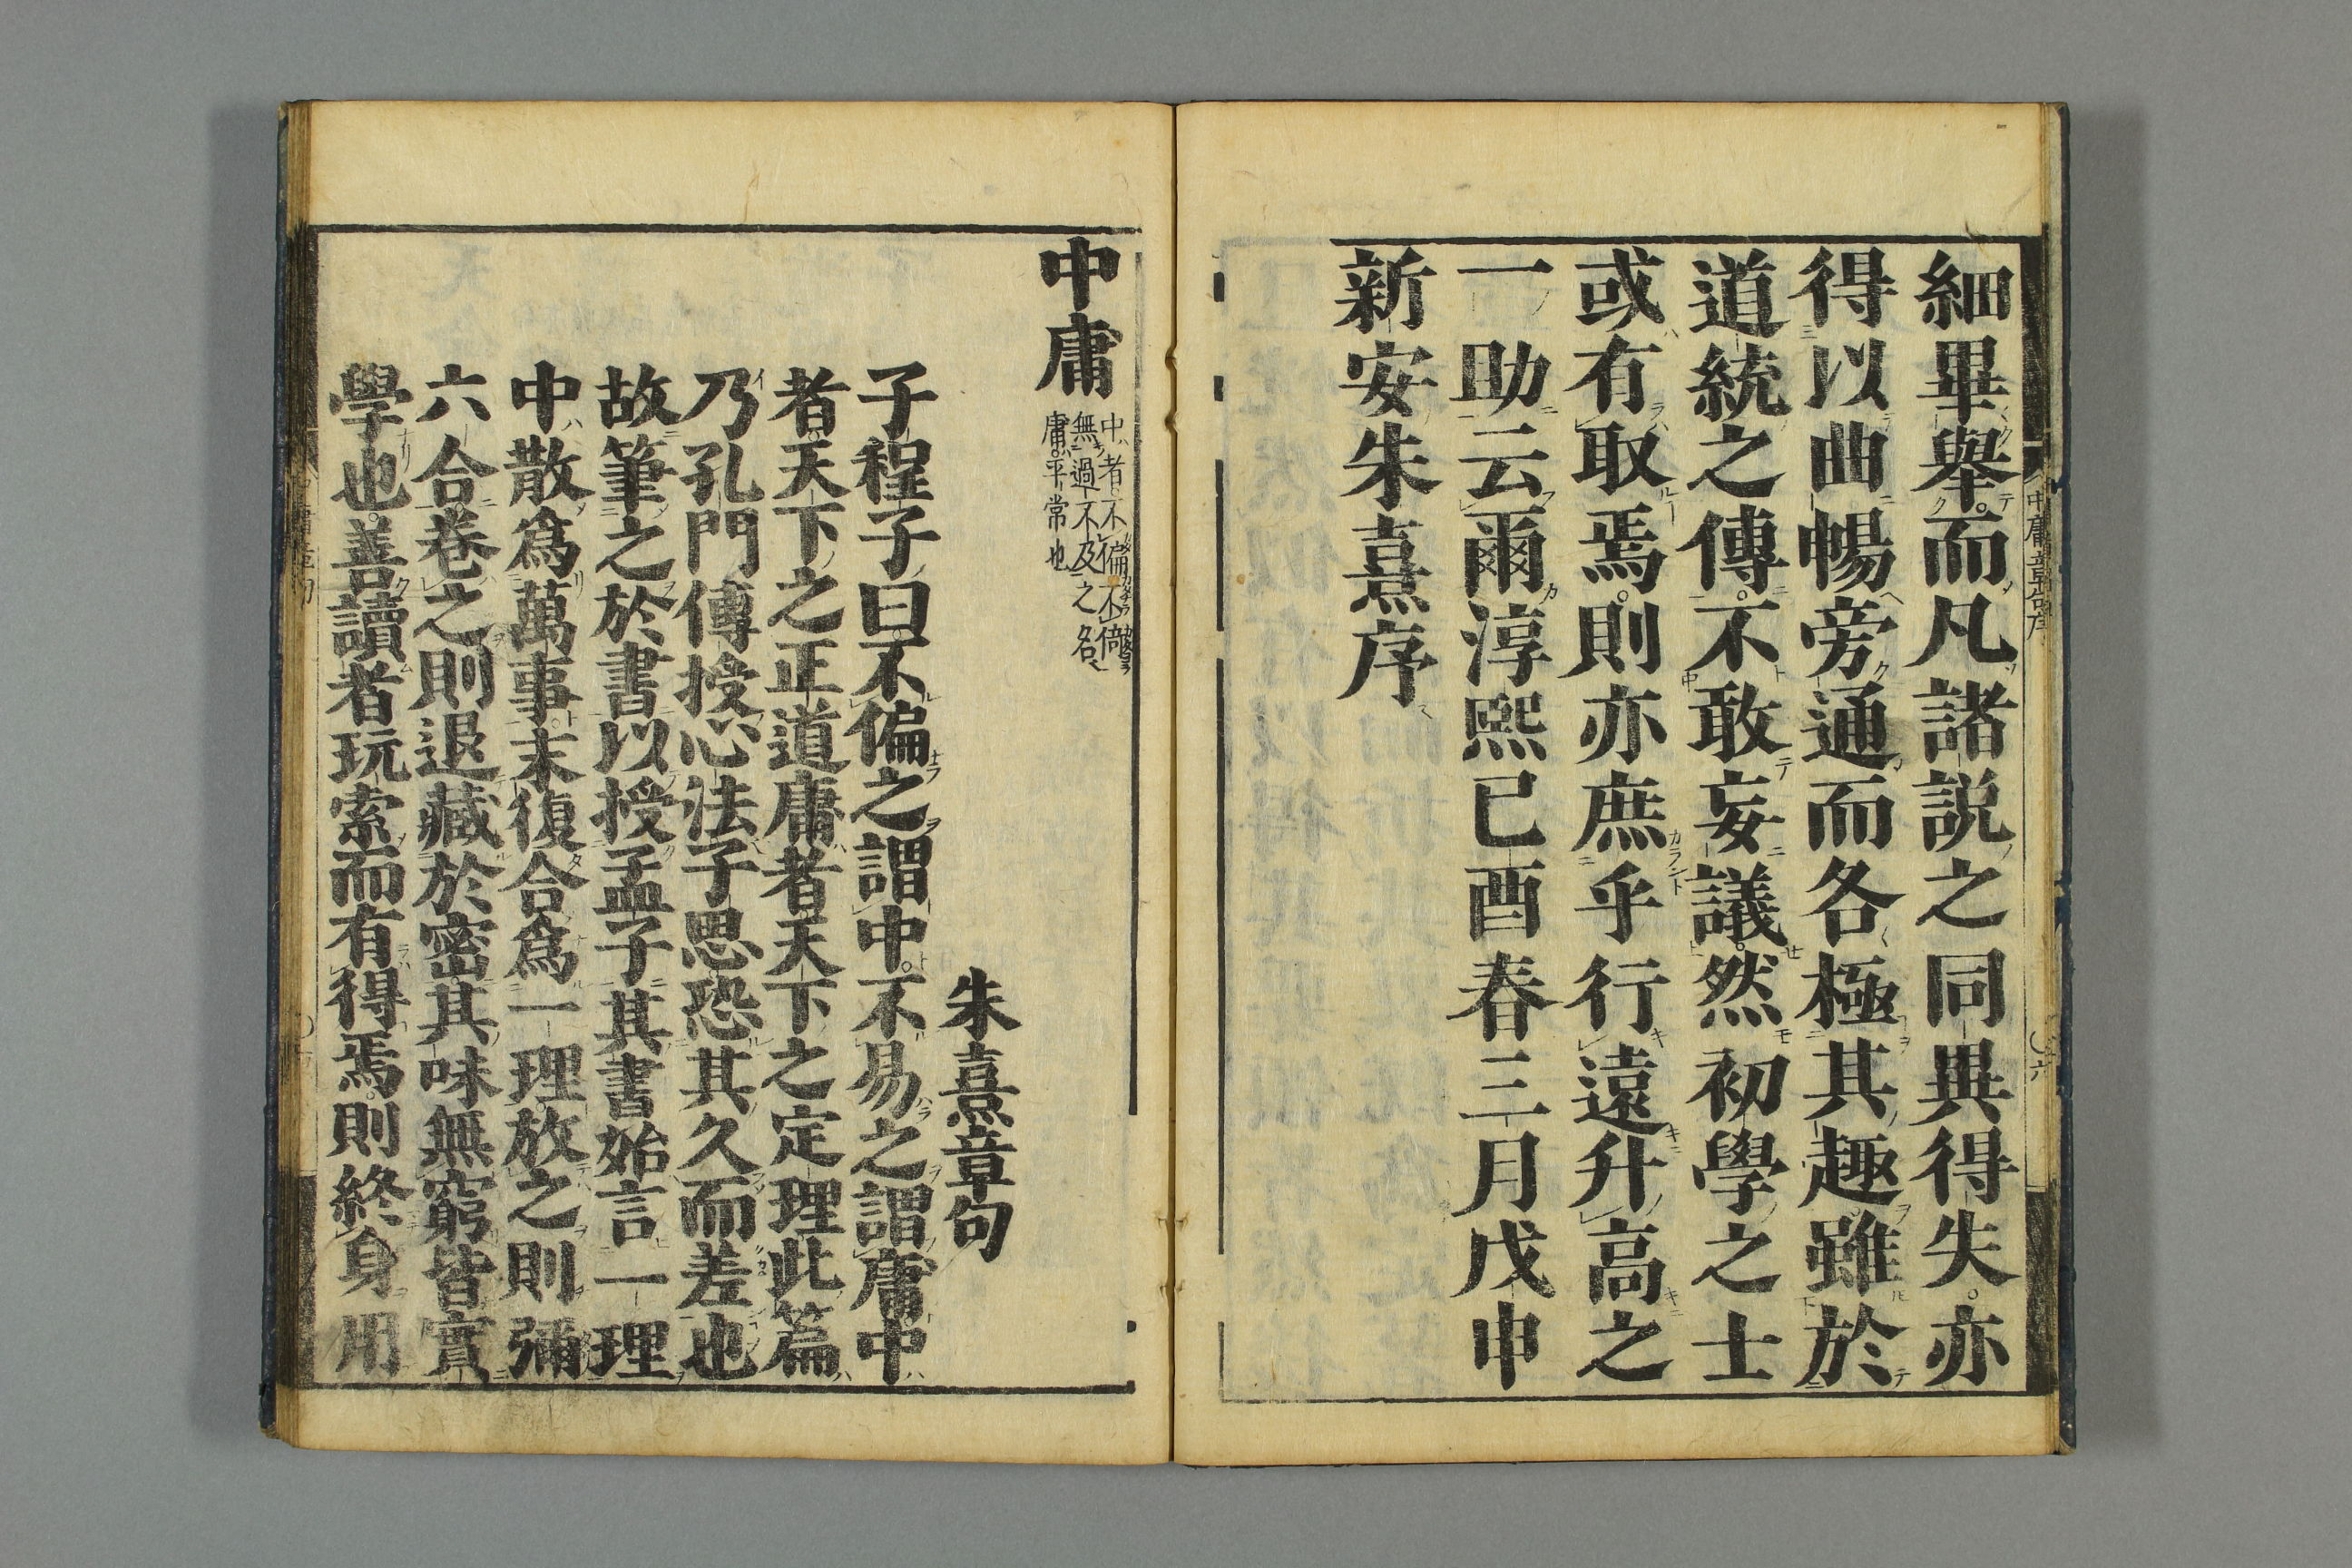 細畢舉。而凡諸説之同異得失。亦
得以曲暢旁通而各極其趣雖於
道統之傳。不敢妄議。然初學之士
或有取焉。則亦庶乎行遠升高之
一助云爾淳熙己酉春三月戊申
新安朱熹序
中庸
中者。不偏不倚
無過不及之名
庸。平常也
朱熹章句
子程子曰不偏之謂中。不易之謂庸中
者天下之正道庸者天下之定理此篇
乃孔門傳授心法子思恐其久而差也
故筆之於書以授孟子其書始言一理
中散爲萬事。末復合爲一理。放之則彌
六合。卷之則退藏於密其味無窮皆實
學也。善讀者玩索而有得焉。則終身用